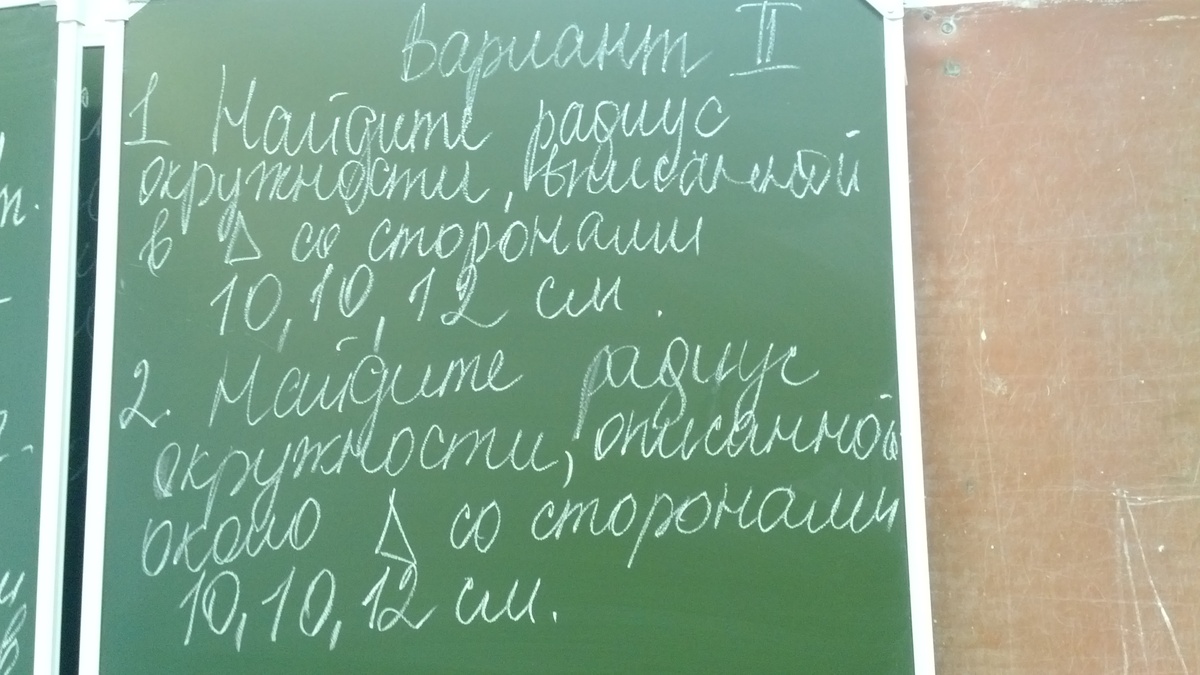 Вариант II
1 Найдите радиус
окружности, вписанной
в △ со сторонами
10, 10, 12 см.
2. Найдите радиус
окружности, описанной
около △ со сторонами
10, 10, 12 см.